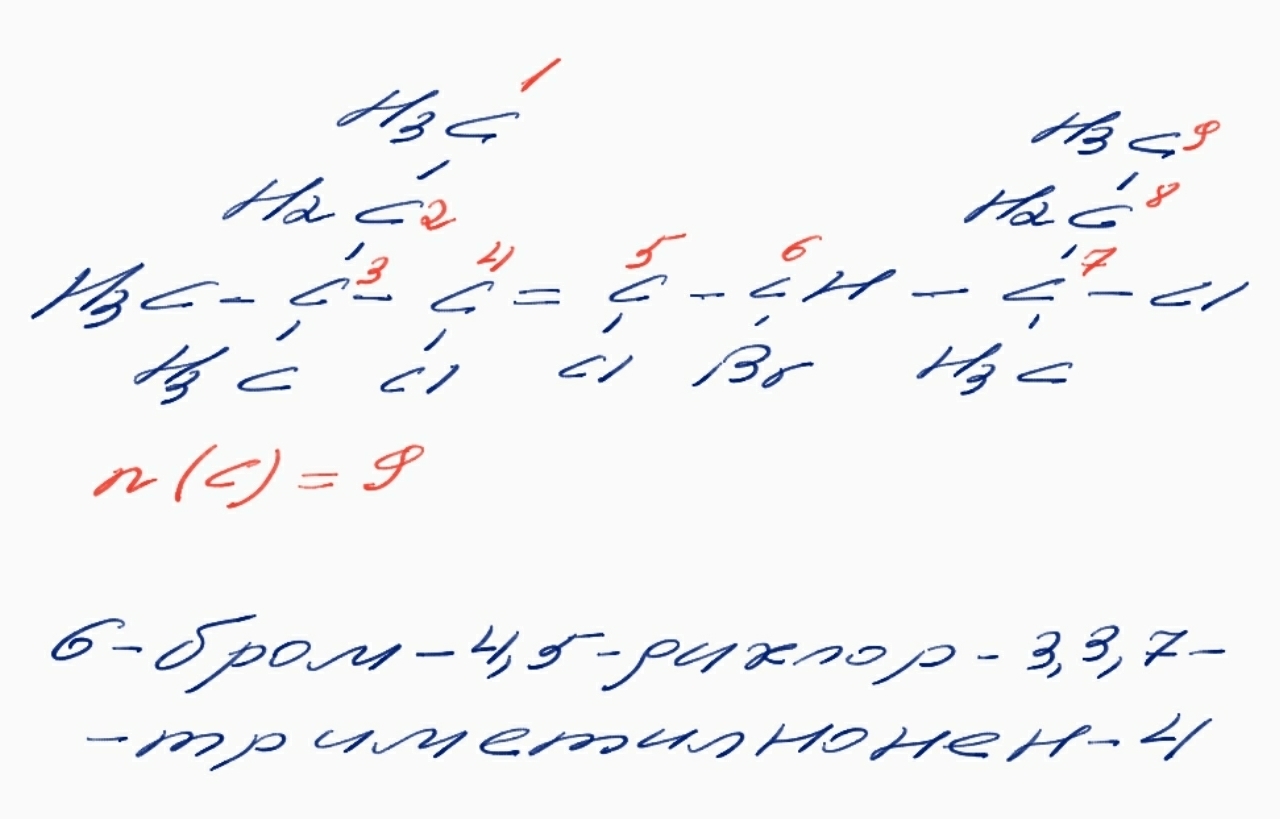 H3C 1
H3C 9
H2C 2
H2C 8
3 4 5 6 7
H3C - C - C = C - CH - C - Cl
H3C Cl Cl Br H3C
n (C) = 9
6-бром-4,5-дихлор-3,3,7-
-триметилнонен-4